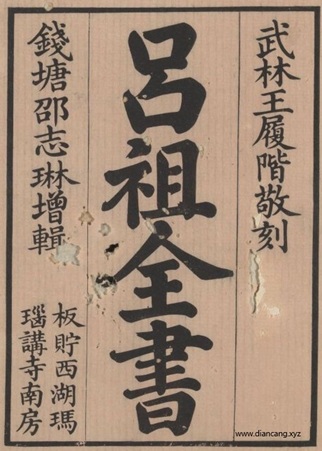 武林王履階敬刻
呂祖全書
錢塘邵志琳增輯
板貯西湖瑪
瑙講寺南房
www.diancang.xyz